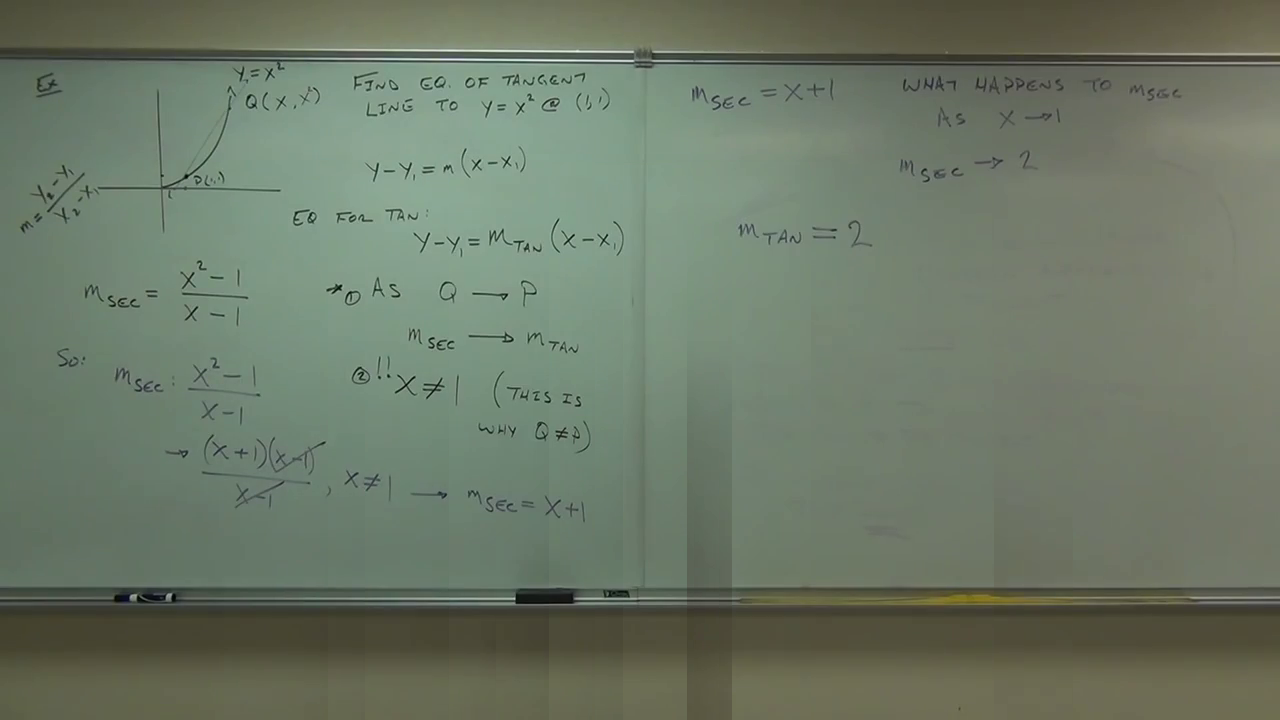 Ex
y=x²
Q(x,x²)
P(1,1)
1
m = y₂-y₁ / x₂-x₁
FIND EQ. OF TANGENT
LINE TO y=x² @ (1,1)
y-y₁ = m(x-x₁)
EQ FOR TAN:
y-y₁ = m TAN (x-x₁)
m SEC = x²-1 / x-1
* ① AS Q → P
m SEC → m TAN
② !! x≠1 (THIS IS
WHY Q≠P)
SO: m SEC: x²-1 / x-1
→ (x+1)(x-1) / x-1 , x≠1 → m SEC = x+1
m SEC = x+1
WHAT HAPPENS TO m SEC
AS x → 1
m SEC → 2
m TAN = 2